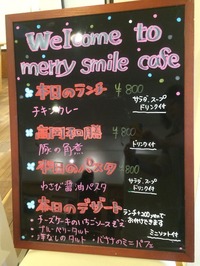 Welcome to
merry smile cafe
本日のランチ ¥800
チキンカレー
サラダ、スープ
ドリンク付
豚の角煮
ドリンク付
平日のパスタ ¥800
わさび醤油パスタ
サラダ、スープ
ドリンク付
本日のデザート
ランチ+200yenで
お付けできます
チーズケーキのいちごソースぞえ
ブルーベリータルト
洋なしのタルト
バナナのミニパフェ
ミニソルト付